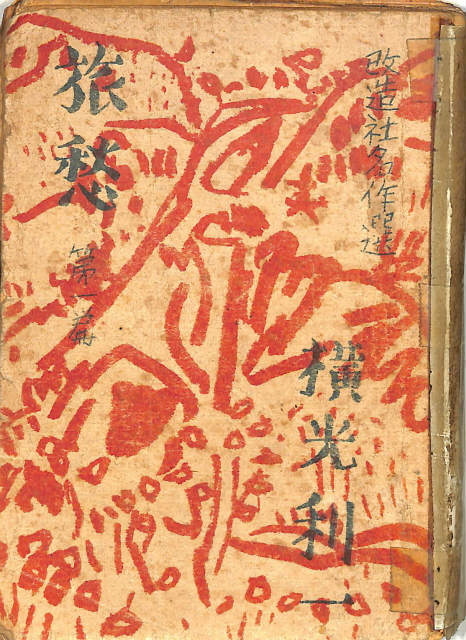 改造社名作選
旅愁
第一篇
横光利一